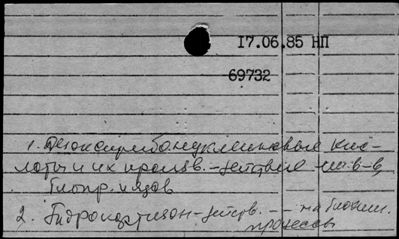 17.06.85 НП
69732
1. Дезоксирибонуклеиновые кис-
лоты и их произв. - действие
2. Гидрокортизон - действ. - на биохим.
процессы